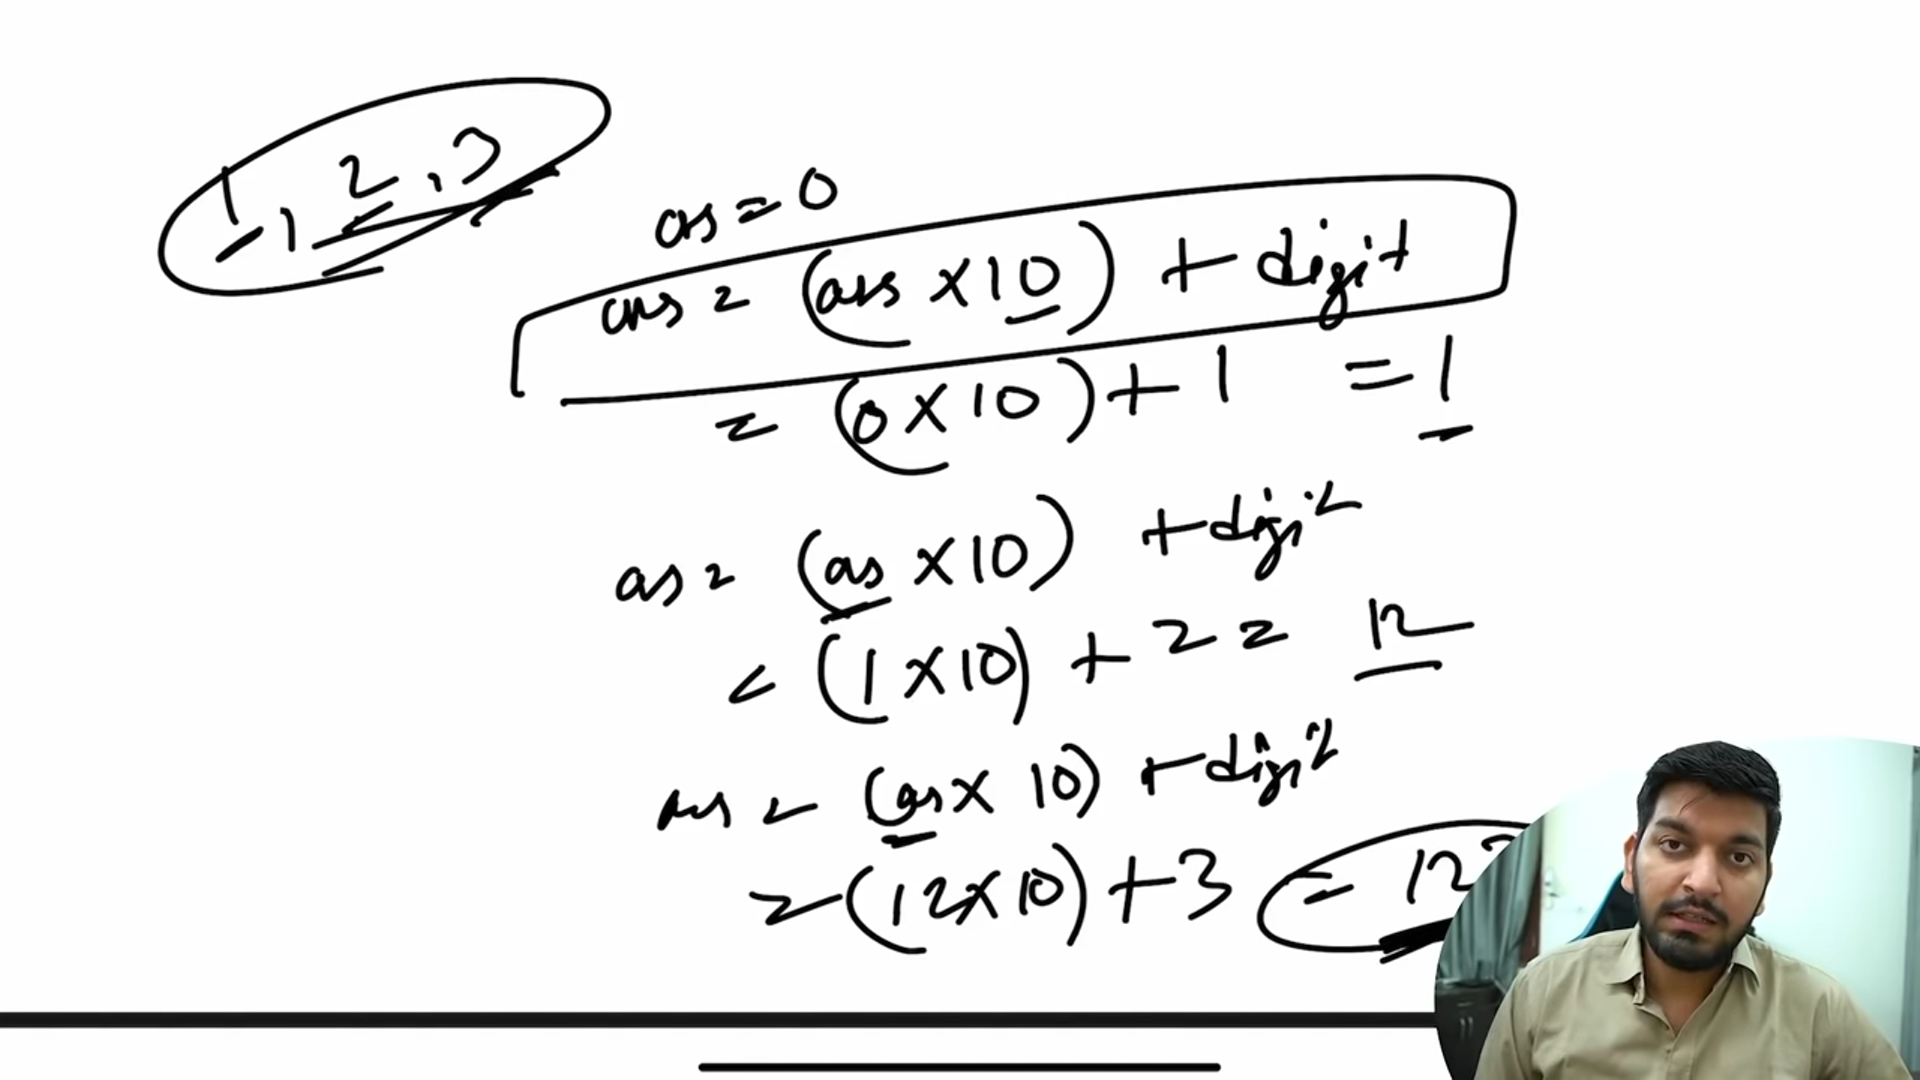 1, 2, 3
ans = 0
ans = (ans × 10) + digit
= (0 × 10) + 1 = 1
ans = (ans × 10) + digit
= (1 × 10) + 2 = 12
ans = (ans × 10) + digit
= (12 × 10) + 3 = 12